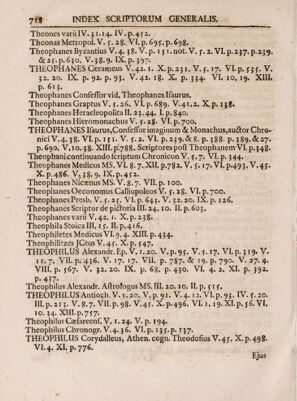 718 INDEX SCRIPTORUM GENERALIS.
Theones varii IV. 31. 14. IV. p. 452.
Theonas Metropol. V. 5. 28. VI. p. 695. p. 698.
Theophanes Byzantius V. 4. 38. V. p. 151. not. V. 5. 2. VI. p. 237. p. 239.
& 25. p. 630. V. 38. 9. IX. p. 397.
THEOPHANES Cerameus V. 42. 1. X. p. 231. V. 5. 17. VI. p. 535. V.
32. 20. IX. p. 92. p. 93. V. 42. 18. X. p. 334. VI. 10. 19. XIII.
p. 613.
Theophanes Confessor vid. Theophanes Isaurus.
Theophanes Graptus V. 5. 26. VI. p. 689. V. 41. 2. X. p. 138.
Theophanes Heracleopolita II. 23. 44. I. p. 840.
Theophanes Hieromonachus V. 5. 28. VI. p. 700.
THEOPHANES Isaurus, Confessor imaginum & Monachus, auctor Chro-
nici V. 4. 38. VI. p. 151. V. 5. 2. VI. p. 239. & 8. p. 388. p. 389. & 27.
p. 690. V. 10. 38. XIII. p. 788. Scriptores post Theophanem VI. p. 148.
Theophani continuando scriptum Chronicon V. 5. 7. VI. p. 344.
Theophanes Medicus MS. VI. 8. 7. XII. p. 782. V. 5. 17. VI. p. 493. V. 45.
X. p. 486. V. 38. 9. IX. p. 452.
Theophanes Nicenus MS. V. 8. 7. VII. p. 100.
Theophanes Oeconomus Calliupoleos V. 5. 28. VI. p. 700.
Theophanes Presb. V. 5. 25. VI. p. 643. V. 32. 20. IX. p. 126.
Theophanes Scriptor de pictoria III. 24. 10. II. p. 603.
Theophanes varii V. 42. 1. X. p. 238.
Theophila Stoica III. 15. II. p. 416.
Theophiletes Medicus VI. 9. 4. XIII. p. 434.
Theophilitzes JCtus V. 45. X. p. 547.
THEOPHILUS Alexandr. Ep. V. 1. 20. V. p. 95. V. 5. 17. VI. p. 519. V.
11. 7. VII. p. 436. V. 17. 17. VII. p. 787. & 19. p. 790. V. 27. 4.
VIII. p. 567. V. 32. 20. IX. p. 68. p. 430. VI. 4. 2. XI. p. 392.
p. 437.
Theophilus Alexandr. Astrologus MS. III. 20. 10. II. p. 515.
THEOPHILUS Antioch. V. 1. 20. V. p. 91. V. 4. 12. VI. p. 93. IV. 5. 20.
III. p. 213. V. 8. 7. VII. p. 98. V. 45. X. p. 496. VI. 1. 19. XI. p. 56. VI.
10. 34. XIII. p. 757.
Theophilus Cæsareens. V. 1. 24. V. p. 194.
Theophilus Chronogr. V. 4. 36. VI. p. 135. p. 137.
THEOPHILUS Corydalleus, Athen. cogn. Theodosius V. 45. X. p. 498.
VI. 4. XI. p. 776.
Ejus